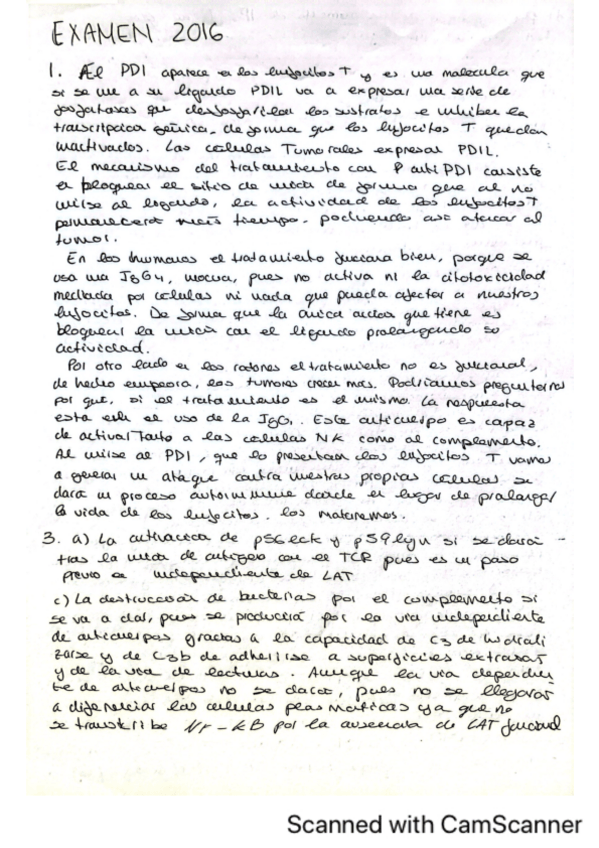 EXAMEN 2016
1. El PD1 aparece en los linfocitos T y es una molecula que
si se une a su ligando PD1L va a expresar una serie de
fosfatasas que desfosforilan los sustratos e inhiben la
transcripción génica, de forma que los linfocitos T quedan
inactivados. Las celulas Tumorales expresan PD1L.
El mecanismo del tratamiento con anti PD1 consiste
en bloquear el sitio de unión de forma que al no
unirse al ligando, la actividad de los linfocitos T
permanecerá más tiempo, pudiendo así atacar al
tumor.
En los humanos el tratamiento funciona bien, porque se
usa una IgG4, inocua, pues no activa ni la citotoxicidad
mediada por celulas ni nada que pueda afectar a nuestros
linfocitos. De forma que la única acción que tiene es
bloquear la unión con el ligando prolongando su
actividad.
Por otro lado en los ratones el tratamiento no es funcional,
de hecho empeora, los tumores crecen más. Podríamos preguntarnos
por qué, si el tratamiento es el mismo. La respuesta
está en el uso de la IgG1. Este anticuerpo es capaz
de activar tanto a las celulas NK como al complemento.
Al unirse al PD1, que lo presentan los linfocitos T vamos
a generar un ataque contra nuestras propias celulas se
dará un proceso autoinmune donde en lugar de prolongar
la vida de los linfocitos, los mataremos.
3. a) La activación de p56 lck y p59 fyn si se dará
tras la unión de antígeno con el TCR pues es un paso
previo e independiente de LAT
c) La destrucción de bacterias por el complemento si
se va a dar, pues se producirá por la vía independiente
de anticuerpos gracias a la capacidad de C3 de hidroli
zarse y de C3b de adherirse a superficies extrañas
y de la vía de lectinas. Aunque la vía dependien
te de anticuerpos no se dará, pues no se llegarán
a diferenciar las celulas plasmáticas ya que no
se transcribe NF-KB por la ausencia de LAT funcional
Scanned with CamScanner